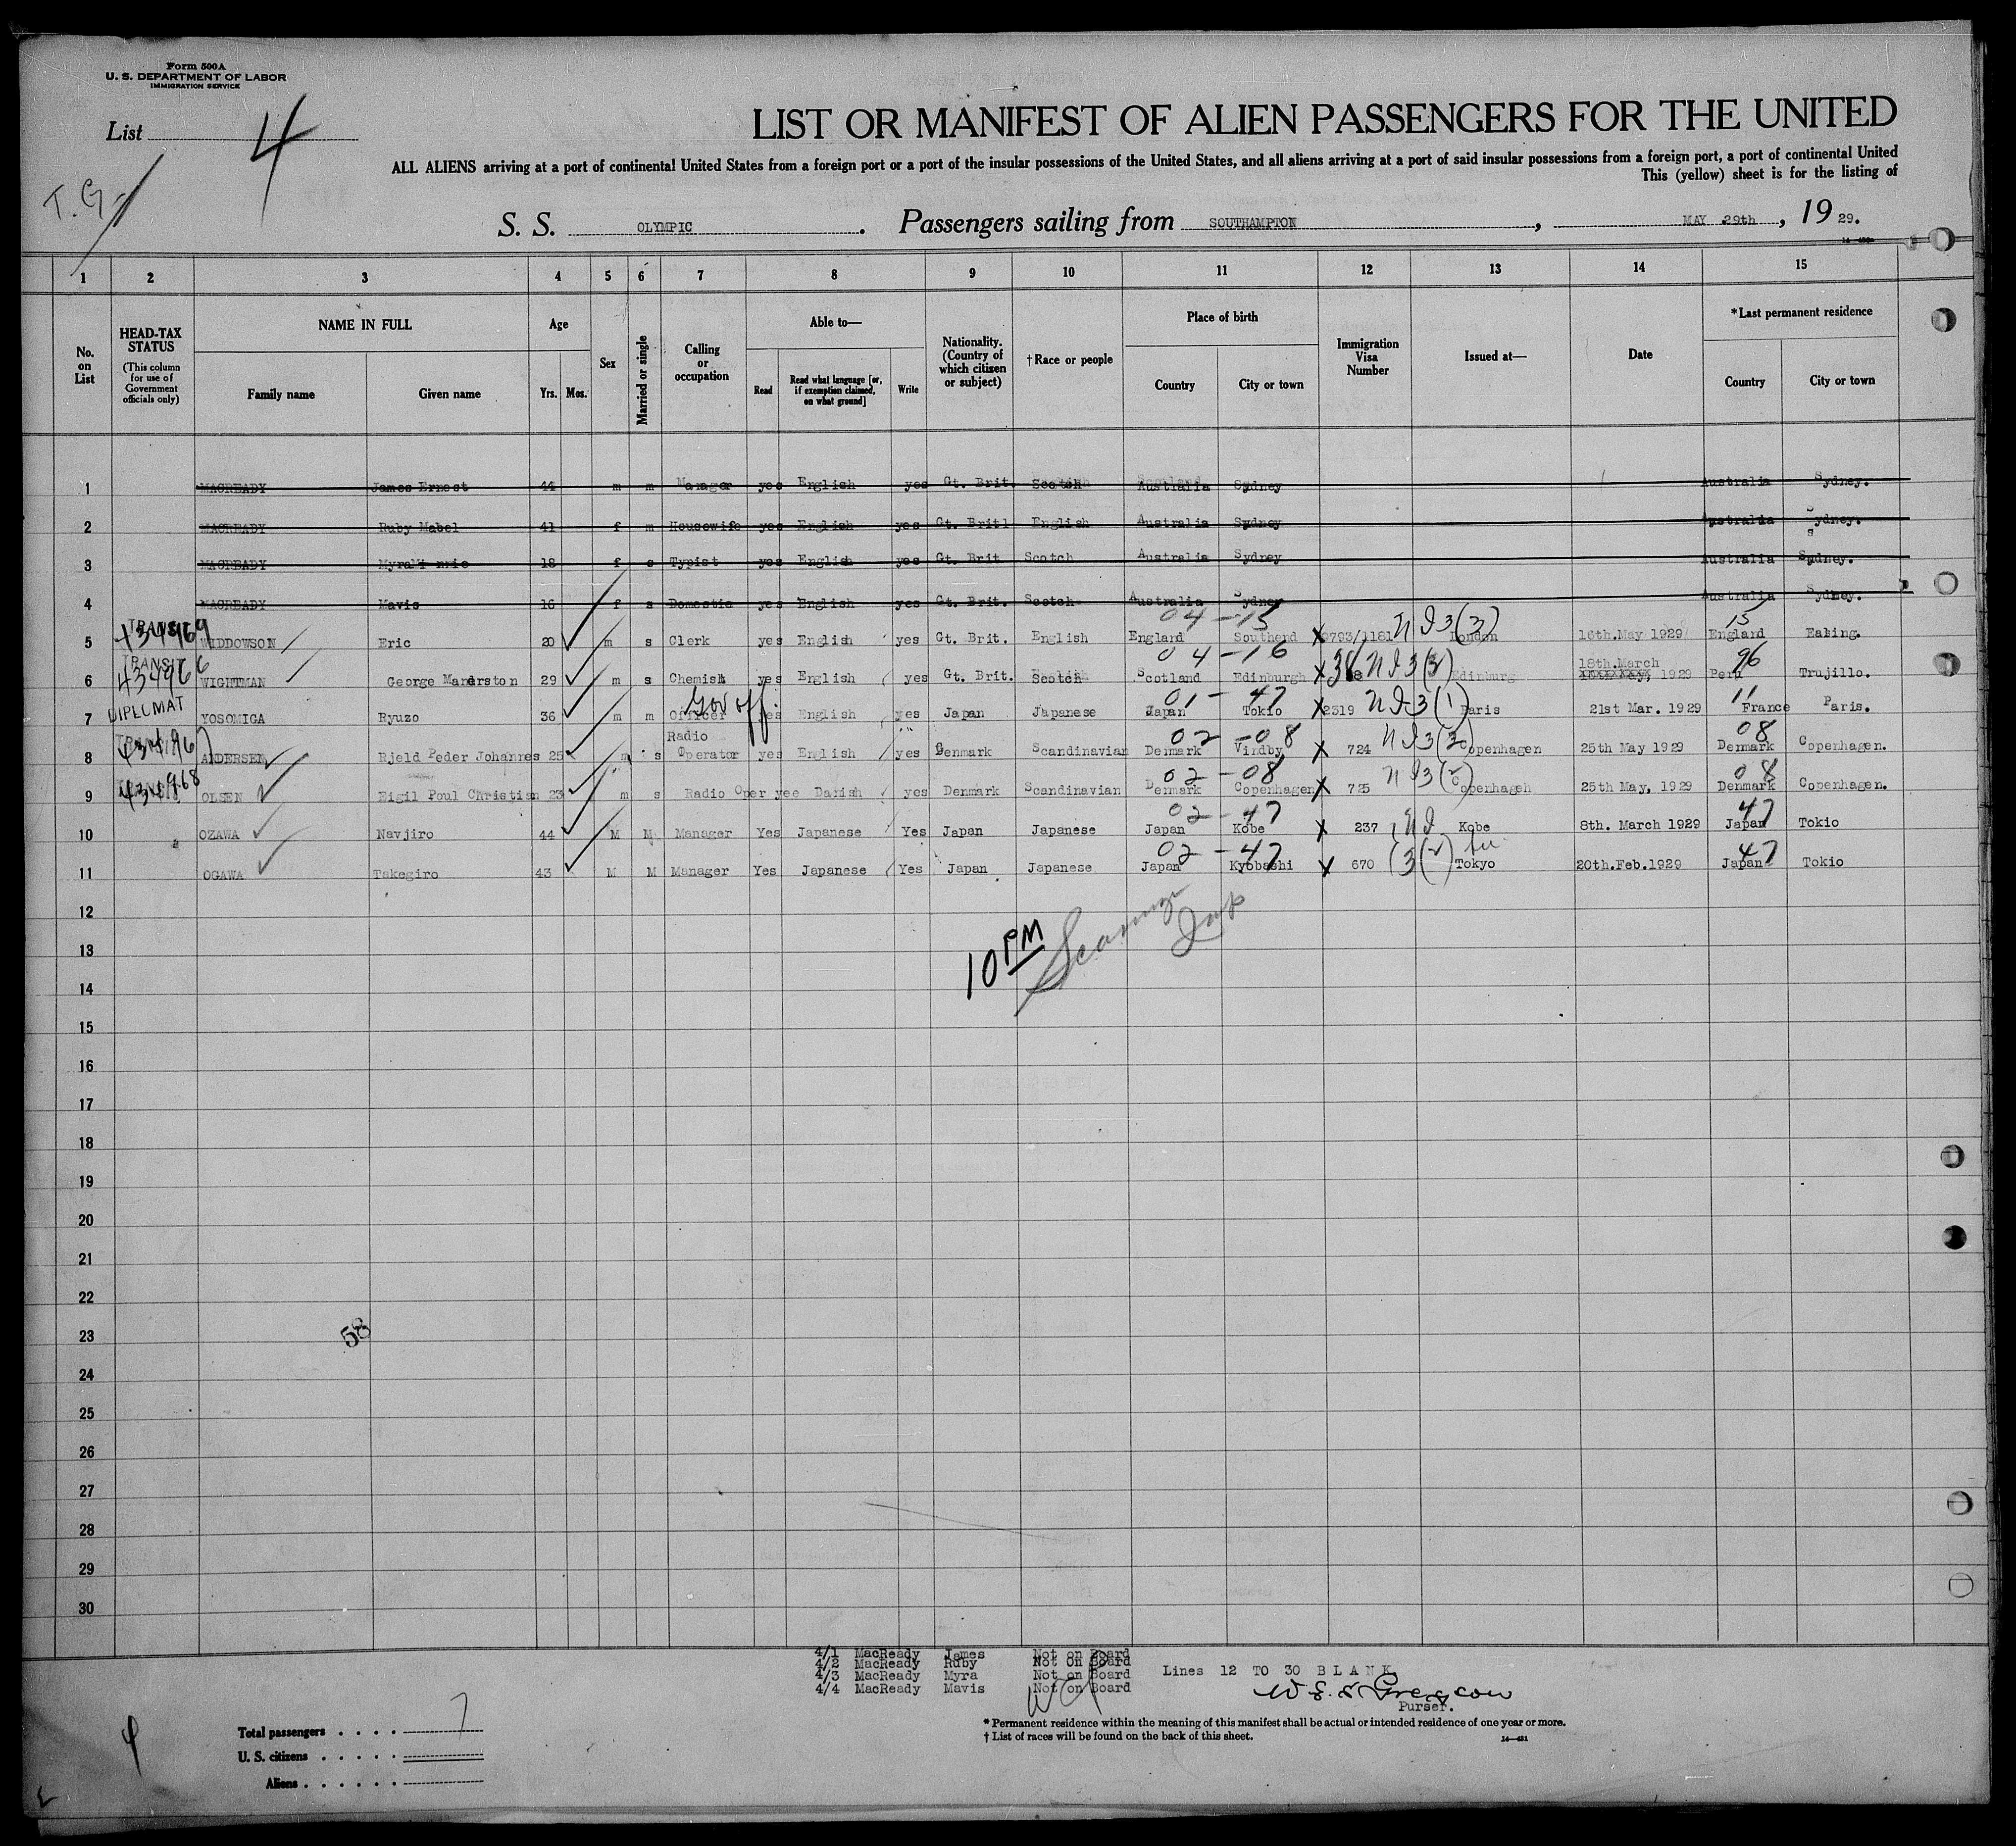 Form 500A
U. S. DEPARTMENT OF LABOR
IMMIGRATION SERVICE
List 4
T. G.
LIST OR MANIFEST OF ALIEN PASSENGERS FOR THE UNITED
ALL ALIENS arriving at a port of continental United States from a foreign port or a port of the insular possessions of the United States, and all aliens arriving at a port of said insular possessions from a foreign port, a port of continental United
This (yellow) sheet is for the listing of
S. S. OLYMPIC. Passengers sailing from SOUTHAMPTON, MAY 29th, 19 29.
1 2 3 4 5 6 7 8 9 10 11 12 13 14 15
No. on List
HEAD-TAX STATUS
(This column for use of Government officials only)
NAME IN FULL
Family name Given name
Age
Yrs. Mos.
Sex
Married or single
Calling or occupation
Able to—
Read Read what language [or, if exemption claimed, on what ground] Write
Nationality. (Country of which citizen or subject)
†Race or people
Place of birth
Country City or town
Immigration Visa Number
Issued at—
Date
*Last permanent residence
Country City or town
1 MACREADY James Ernest 44 m m Manager yes English yes Gt. Brit. Scotch Australia Sydney Australia Sydney.
2 MACREADY Ruby Mabel 41 f m Housewife yes English yes Gt. Britl English Australia Sydney Australia Sydney.
3 MACREADY Myra 18 f s Typist yes English yes Gt. Brit Scotch Australia Sydney Australia Sydney.
4 MACREADY Mavis 16 f s Domestic yes English yes Gt. Brit. Scotch Australia Sydney Australia Sydney.
TRANSIT 434969 04 - 15 15
5 WIDDOWSON Eric 20 m s Clerk yes English yes Gt. Brit. English England Southend 9793/1181 NI3(3) London 16th.May 1929 England Ealing.
TRANSIT 434966 04 - 16 18th.March 96
6 WIGHTMAN George Manderston 29 m s Chemist yes English yes Gt. Brit. Scotch Scotland Edinburgh NI3(3) Edinburg May, 1929 Peru Trujillo.
DIPLOMAT Gov off 01 - 47 11
7 YOSOMIGA Ryuzo 36 m m Officer yes English yes Japan Japanese Japan Tokio 2319 NI3(1) Paris 21st Mar. 1929 France Paris.
434967 Radio 02 - 08 08
8 ANDERSEN Rjeld Peder Johannes 25 m s Operator yes English yes Denmark Scandinavian Denmark Vindby 724 NI3(2) Copenhagen 25th May 1929 Denmark Copenhagen.
434968 02 - 08 08
9 OLSEN Eigil Poul Christian 23 m s Radio Oper yee Danish yes Denmark Scandinavian Denmark Copenhagen 725 NI3(2) Copenhageh 25th May, 1929 Denmark Copenhagen.
02 - 47 47
10 OZAWA Navjiro 44 M M Manager Yes Japanese Yes Japan Japanese Japan Kobe 237 NI Kobe 8th. March 1929 Japan Tokio
02 - 47 47
11 OGAWA Takegiro 43 M M Manager Yes Japanese Yes Japan Japanese Japan Kyobashi 670 (3(2) Tokyo 20th.Feb.1929 Japan Tokio
12
10 PM
13
14
15
16
17
18
19
20
21
22
23 58
24
25
26
27
28
29
30
4/1 MacReady James Not on Board
4/2 MacReady Ruby Not on Board
4/3 MacReady Myra Not on Board
4/4 MacReady Mavis Not on Board
Lines 12 TO 30 B L A N K
Purser.
Total passengers . . . . 7
U. S. citizens . . . . .
Aliens . . . . . .
* Permanent residence within the meaning of this manifest shall be actual or intended residence of one year or more.
† List of races will be found on the back of this sheet.
14—431